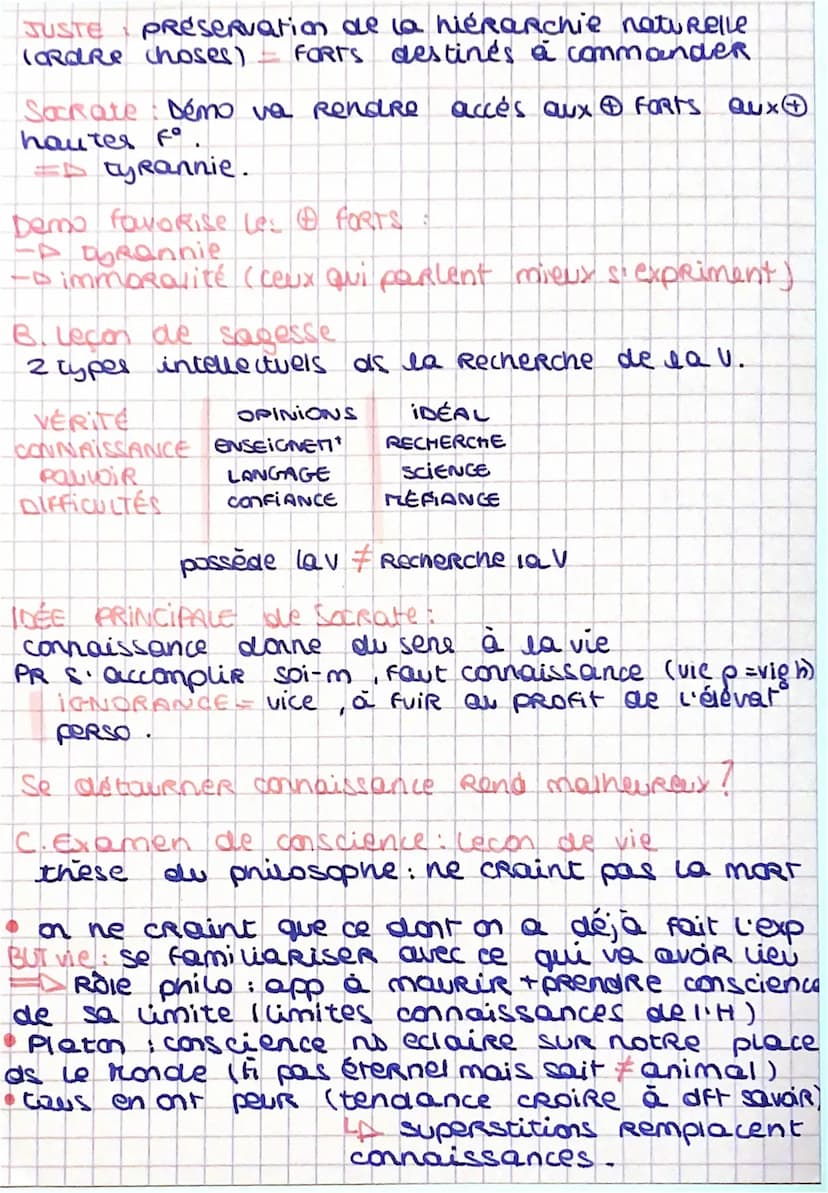 JUSTE : préservation de la hiérarchie naturelle
(ordre choses) = forts destinés à commander
Socrate : Démo va rendre accès aux ⊕ forts aux ⊕
hautes f°.
=> tyrannie.
Demo favorise les ⊕ forts :
-> tyrannie
-> immoralité (ceux qui parlent mieux s'expriment)
B. Leçon de sagesse
2 types intellectuels ds la recherche de la V.
VÉRITÉ OPINIONS iDÉAL
CONNAISSANCE ENSEIGNEMt RECHERCHE
POUVOIR LANGAGE SCIENCE
DIFFICULTÉS CONFIANCE MÉFIANCE
possède la V ≠ Recherche la V
IDÉE PRINCIPALE de Socrate :
connaissance donne du sens à la vie
PR s'accomplir soi-m, faut connaissance (vie p = vie h)
iGNORANCE = vice, à fuir au profit de l'élévat°
perso.
Se détourner connaissance rend malheureux ?
C. Examen de conscience : leçon de vie
thèse du philosophe : ne craint pas la mort
• on ne craint que ce dont on a déjà fait l'exp
BUT vie : se familiariser avec ce qui va avoir lieu
=> Rôle philo : app à mourir + prendre conscience
de sa limite (limites connaissances de l'H)
• Platon : conscience ns eclaire sur notre place
ds le monde (H pas éternel mais sait ≠ animal)
• tous en ont peur (tendance croire à dft savoir)
↳ superstitions remplacent
connaissances.